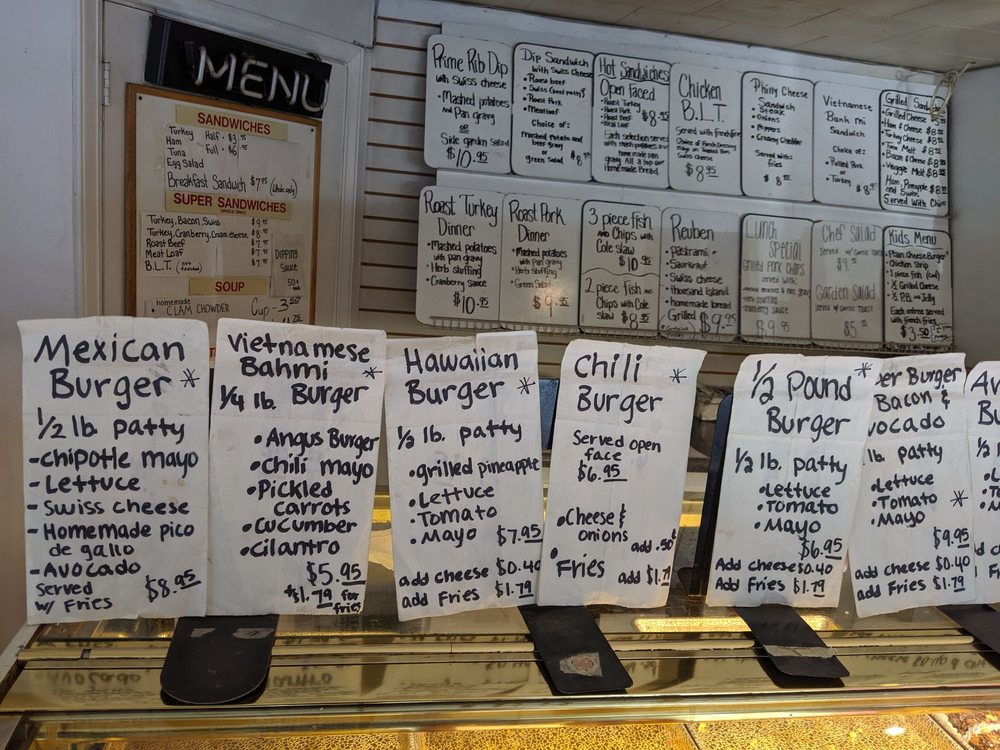 MENU
SANDWICHES
Turkey Half - $3.95
Ham Full - $6.95
Tuna
Egg Salad
Breakfast Sandwich $7.95 (Whole only)
SUPER SANDWICHES
(WHOLE ONLY)
Turkey, Bacon, Swiss
Turkey, Cranberry, Cream cheese
Roast Beef
Meat Loaf
B.L.T. (not toasted)
DIPPING
SAUCE
50¢
SOUP
homemade
CLAM CHOWDER Cup - 3.50
Prime Rib Dip
with Swiss cheese
• Mashed potatoes
and Pan gravy
or
Side garden Salad
$10.95
Dip Sandwich
with Swiss cheese
• Roast beef
• Roast Pork
• Meatloaf
Choice of:
Mashed potato and
beef gravy
or
green salad
Hot Sandwiches
Open faced
• Roast Turkey
• Roast Pork
• Roast Beef
• Meat Loaf
$8.95
Each selection served
with mashed potatoes and
homemade pan
gravy. All a top our
Homemade Bread.
Chicken
B.L.T.
Served with french fries
Swiss Cheese
$8.95
Philly Cheese
Sandwich
• Steak
• Onions
• Peppers
• Creamy Cheddar
Served with
fries
Vietnamese
Banh mi
Sandwich
Choice of:
• Pulled Pork
or
• Turkey
Grilled
• Grilled Cheese
• Ham & Cheese
• Turkey Cheese
• Tuna Melt
• Bacon & Cheese
• Veggie Melt
Ham, Pineapple
and Swiss
Served with Chips
Roast Turkey
Dinner
• Mashed potatoes
with pan gravy
• Herb stuffing
• Cranberry sauce
$10.95
Roast Pork
Dinner
• Mashed potatoes
with pan gravy
• Herb stuffing
• Green Salad
$9.95
3 piece fish
and Chips with
Cole slaw
$10.95
2 piece fish
and Chips with Cole
slaw $8.95
Reuben
• Pastrami
• Saurkraut
• Swiss cheese
• thousand island
• homemade bread
Grilled $9.95
Lunch
Special
Grilled Pork Chops
served with:
$9.95
Chef Salad
Garden Salad
Kids Menu
• Plain Cheese Burger
• Chicken Strip
• 1 piece fish (Cod)
• ½ Grilled Cheese
• ½ P.B. and Jelly
Each entree served
with french fries
$3.50
Mexican
Burger *
½ lb. patty
- Chipotle mayo
- Lettuce
- Swiss cheese
- Homemade pico
de gallo
- Avocado
Served
w/ Fries $8.95
Vietnamese
Bahmi *
¼ lb. Burger
• Angus Burger
• Chili mayo
• Pickled
carrots
• Cucumber
• Cilantro
$5.95
$1.79 for
fries
Hawaiian
Burger *
½ lb. patty
• grilled pineapple
• Lettuce
• Tomato
• Mayo $7.95
add cheese $0.40
add Fries $1.79
Chili *
Burger
Served open
face
$6.95
• Cheese &
onions add .50¢
• Fries add $1.79
½ Pound *
Burger
½ lb. patty
• Lettuce
• Tomato
• Mayo
$6.95
Add cheese $0.40
Add Fries $1.79
er Burger
Bacon &
vocado
lb. patty
• Lettuce
• Tomato *
• Mayo
$9.95
add cheese $0.40
Add Fries $1.79